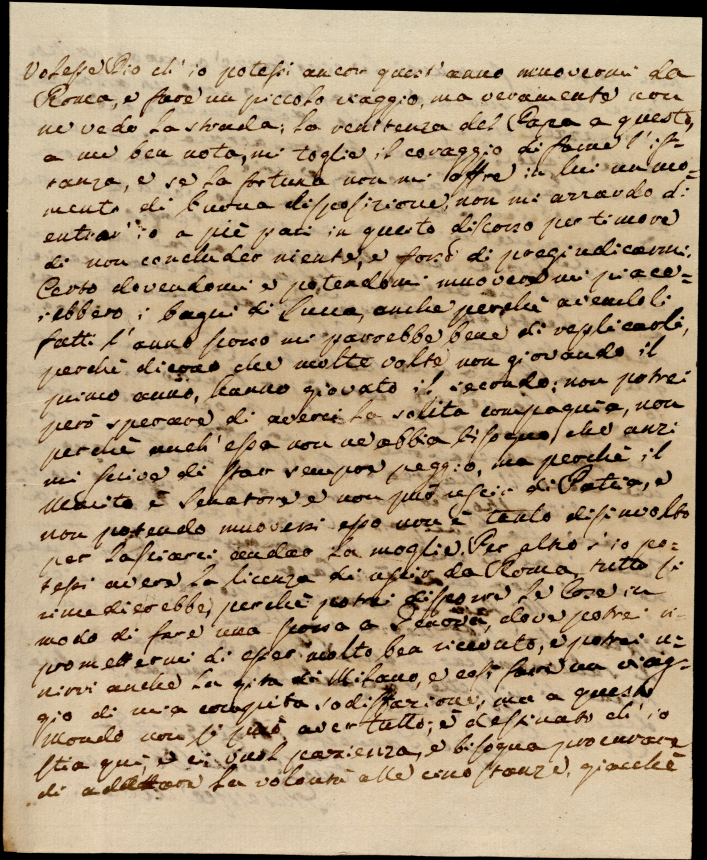 Volesse Dio ch'io potessi ancor quest'anno muovermi da
Roma, e fare un piccolo viaggio, ma veramente non
ne vedo la strada; la renitenza del Papa a questo,
a me ben nota, mi toglie il coraggio di farne l'is=
tanza, e se la fortuna non mi offre in lui un mo=
mento di buona disposizione, non mi azzardo di
entrar'io a piè pari in questo discorso per timore
di non concluder niente, e forsi di pregiudicarmi.
Certo dovendomi e potendomi muovere mi piace=
rebbero i bagni di Lucca, anche perchè avendoli
fatti l'anno scorso mi parerebbe bene di replicarli,
perchè dicono che molte volte non giovando il
primo anno, hanno giovato il secondo; non potrei
però sperare di averci la solita compagnia, non
perchè anch'essa non ne abbia bisogno, che anzi
mi scrive di star sempre peggio, ma perchè il
Marito è Senatore e non può uscir di Patria, e
non potendo muoversi esso non è tanto disinvolto
per lasciarci andar la moglie. Per altro s'io po=
tessi avere la licenza di uscir da Roma, tutto si
rimedierebbe, perchè potrei disporre le cose in
modo di fare una scorsa a Genova, dove potrei ri=
promettermi di esser molto ben ricevuto, e potrei u=
nirvi anche la gita di Milano, e così farei un viag=
gio di mia compita sodisfazione; ma a questo
mondo non si può aver tutto; è destinato ch'io
stia quì, e ci vuol pazienza, e bisogna procurare
di adattare la volontà alle circostanze, giacchè